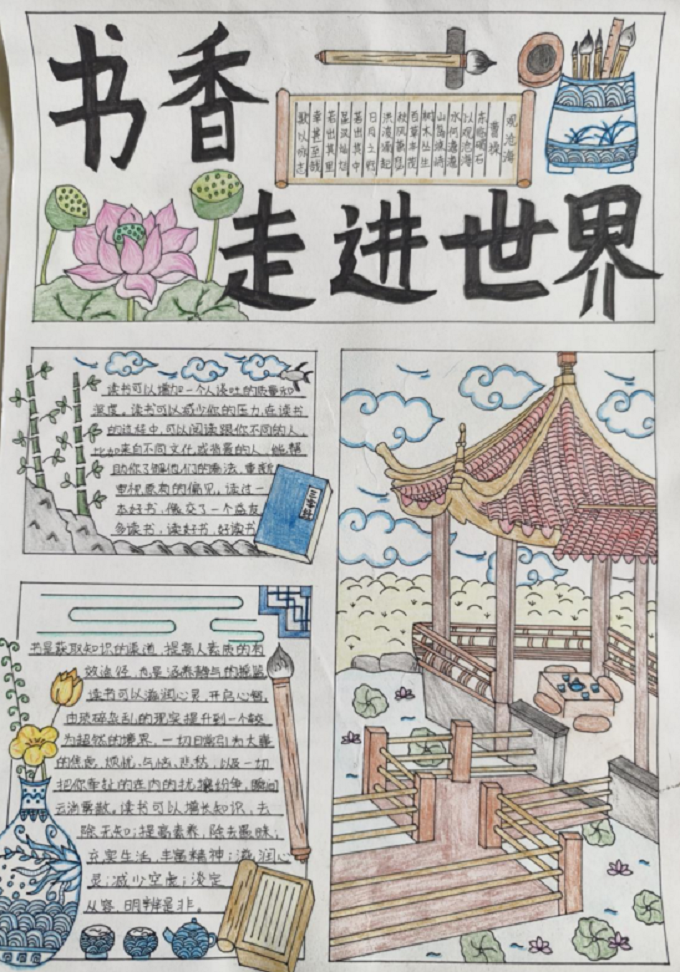 书香
观沧海
曹操
东临碣石
以观沧海
水何澹澹
山岛竦峙
树木丛生
百草丰茂
秋风萧瑟
洪波涌起
日月之行
若出其中
星汉灿烂
若出其里
幸甚至哉
歌以咏志
走进世界
读书可以增加一个人谈吐的质量和
深度，读书可以减少你的压力，在读书
的过程中，可以阅读跟你不同的人，
比如来自不同文化，或背景的人，能帮
助你了解他们的看法，重新
审视原有的偏见，读过一
本好书，像交了一个益友
多读书，读好书，好读书
三字经
书是获取知识的渠道，提高人素质的有
效途径，也是涵养静气的
读书可以滋润心灵，开启心智，
由琐碎杂乱的现实提升到一个较
为超然的境界，一切日常引为大事
的焦虑，烦忧、气恼、悲愁，以及一切
把你牵扯的在内的扰攘纷争，瞬间
云消雾散，读书可以增长知识，去
除无知；提高素养，除去愚昧；
充实生活，丰富精神；滋润心
灵；减少空虚；淡定
从容，明辨是非。